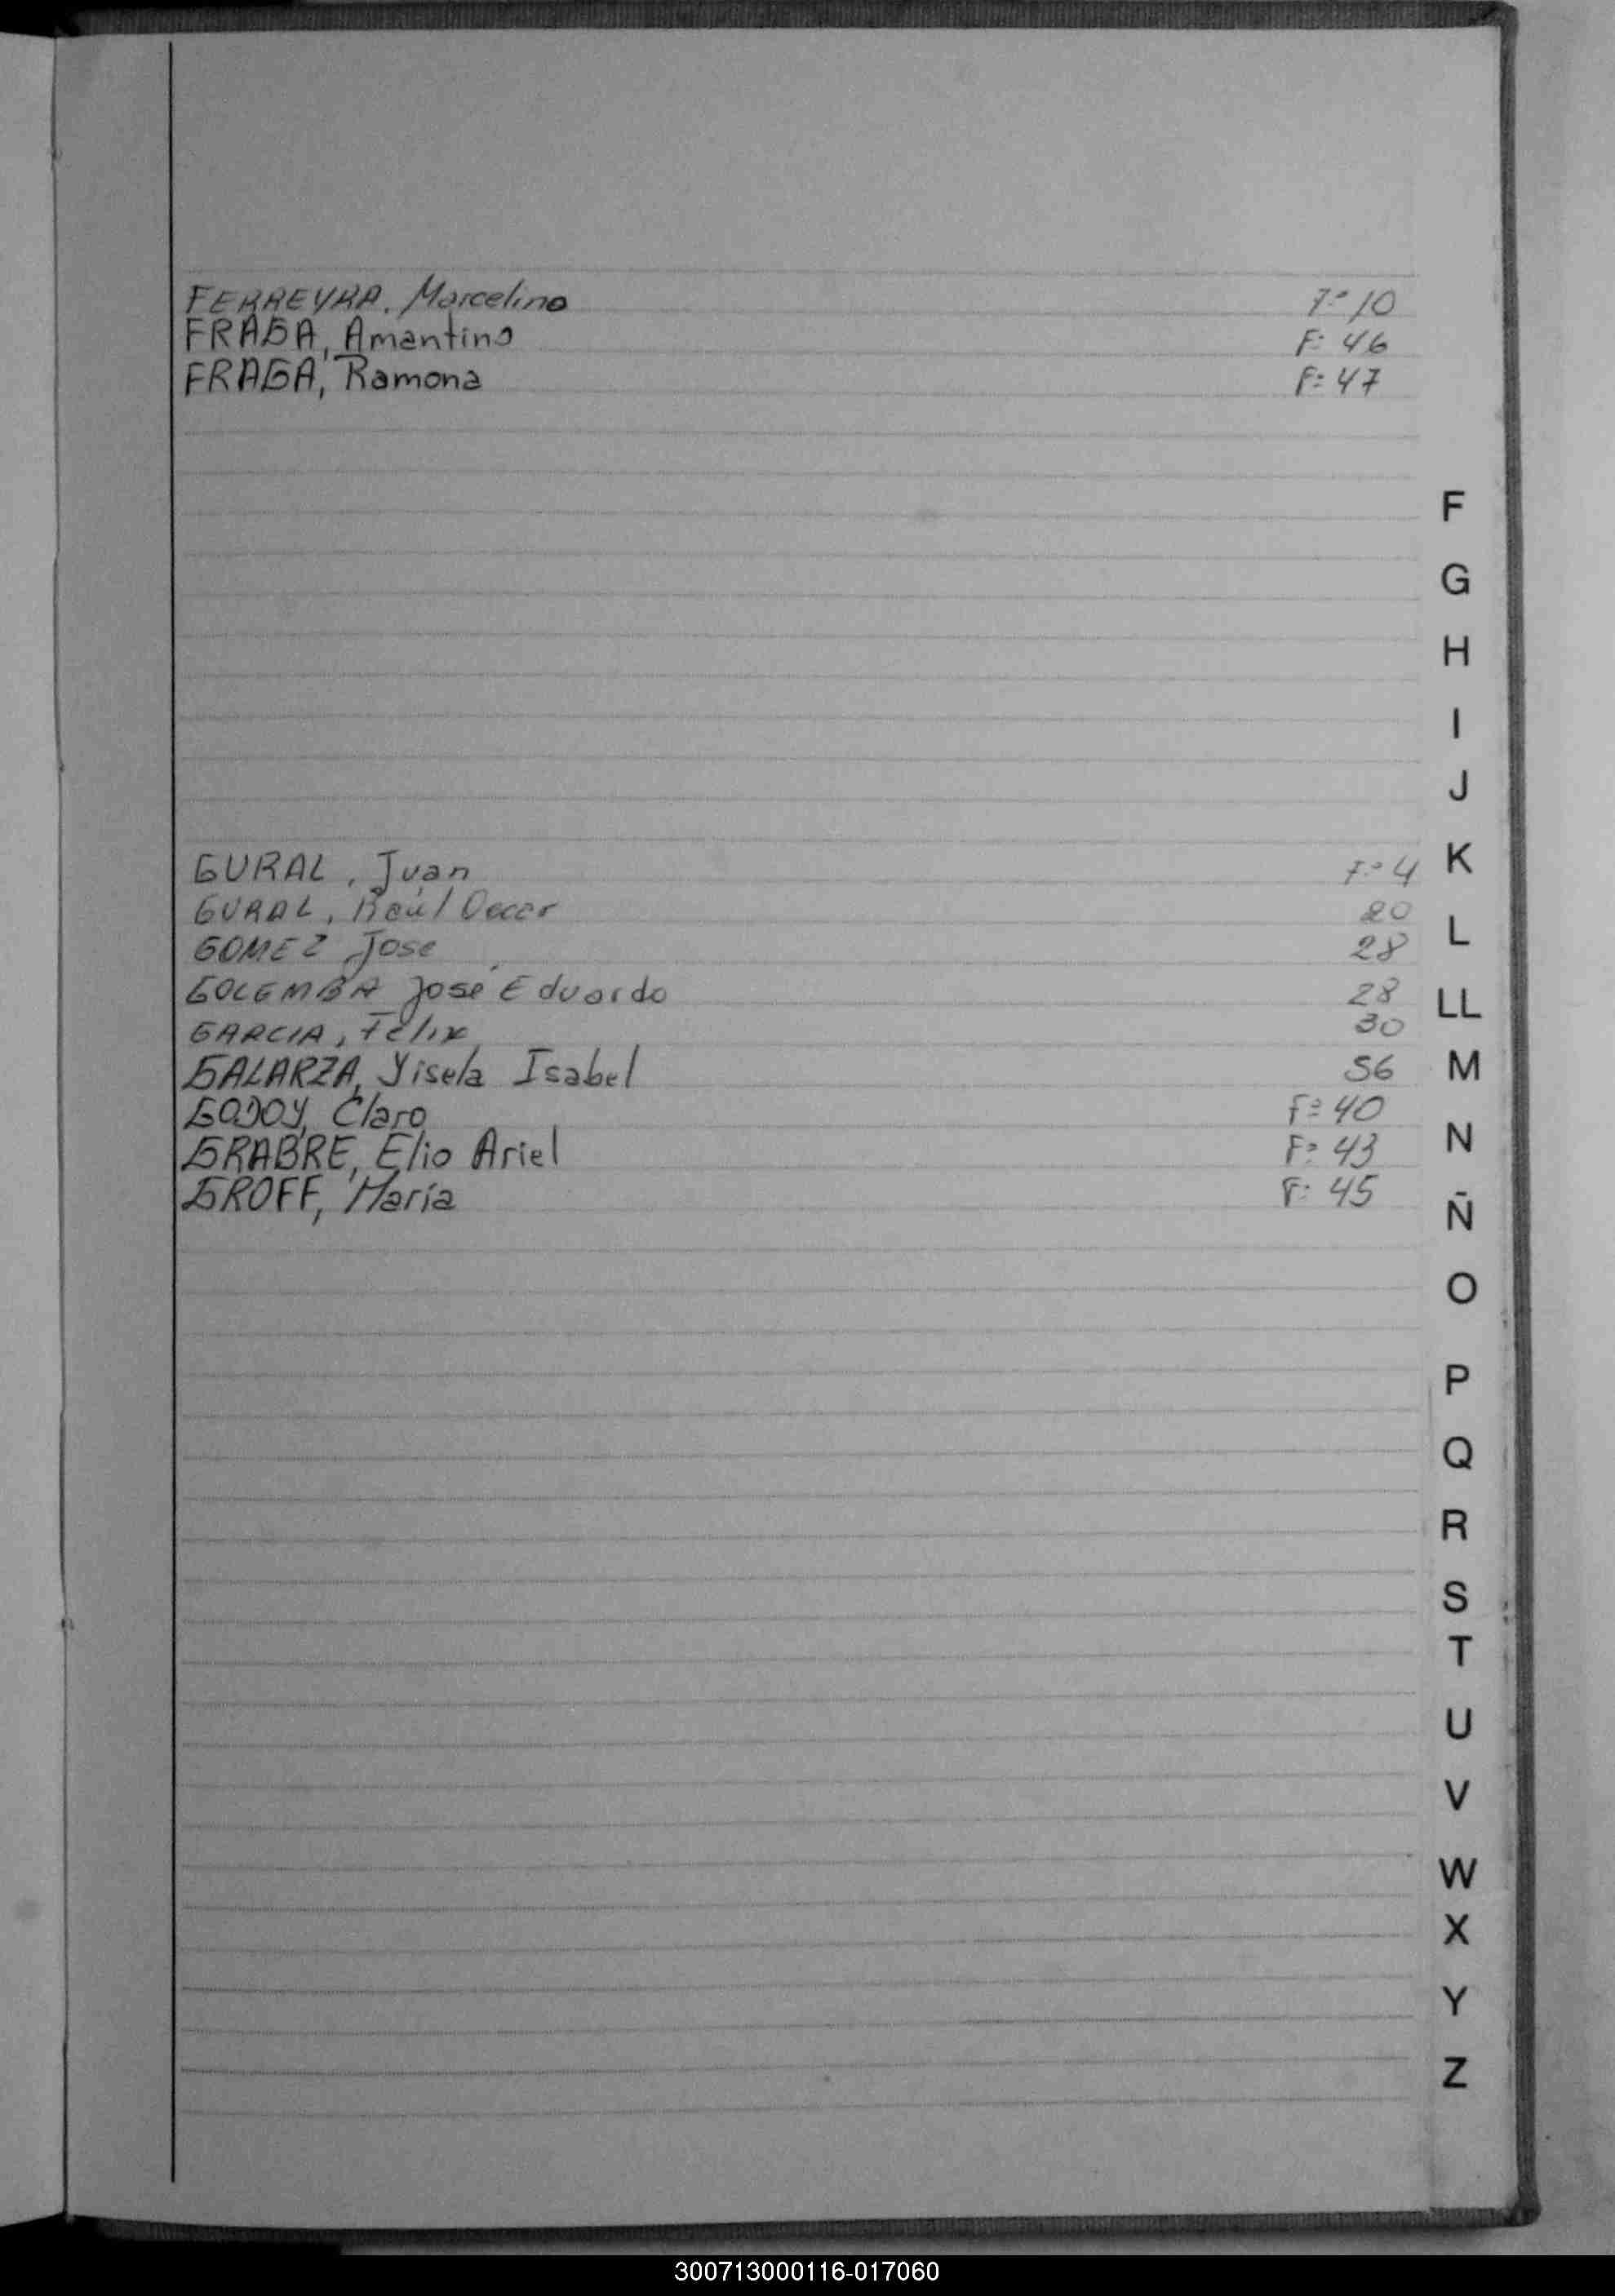 FERREYRA, Marcelino Fº 10
FRAGA, Amantino F: 46
FRAGA, Ramona F: 47
F
G
H
I
J
GURAL, Juan Fº 4
K
GURAL, Raúl Oscar 20
L
GOMEZ, Jose 28
GOLEMBA José Eduardo 28
LL
GARCIA, Félix 30
GALARZA, Yisela Isabel 56
M
GODOY, Claro Fº 40
GRABRE, Elio Ariel Fº 43
N
GROFF, María F: 45
Ñ
O
P
Q
R
S
T
U
V
W
X
Y
Z
300713000116-017060